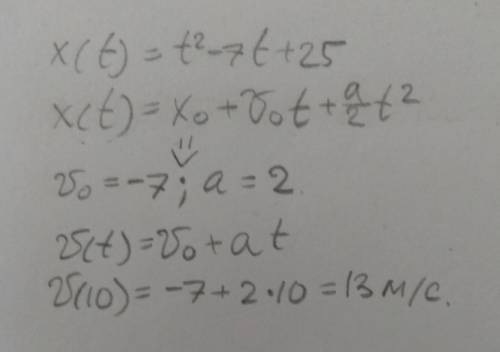 x(t) = t² - 7t + 25
x(t) = x₀ + v₀t + a/2 t²
⇓
v₀ = -7; a = 2.
v(t) = v₀ + at
v(10) = -7 + 2·10 = 13 м/с.